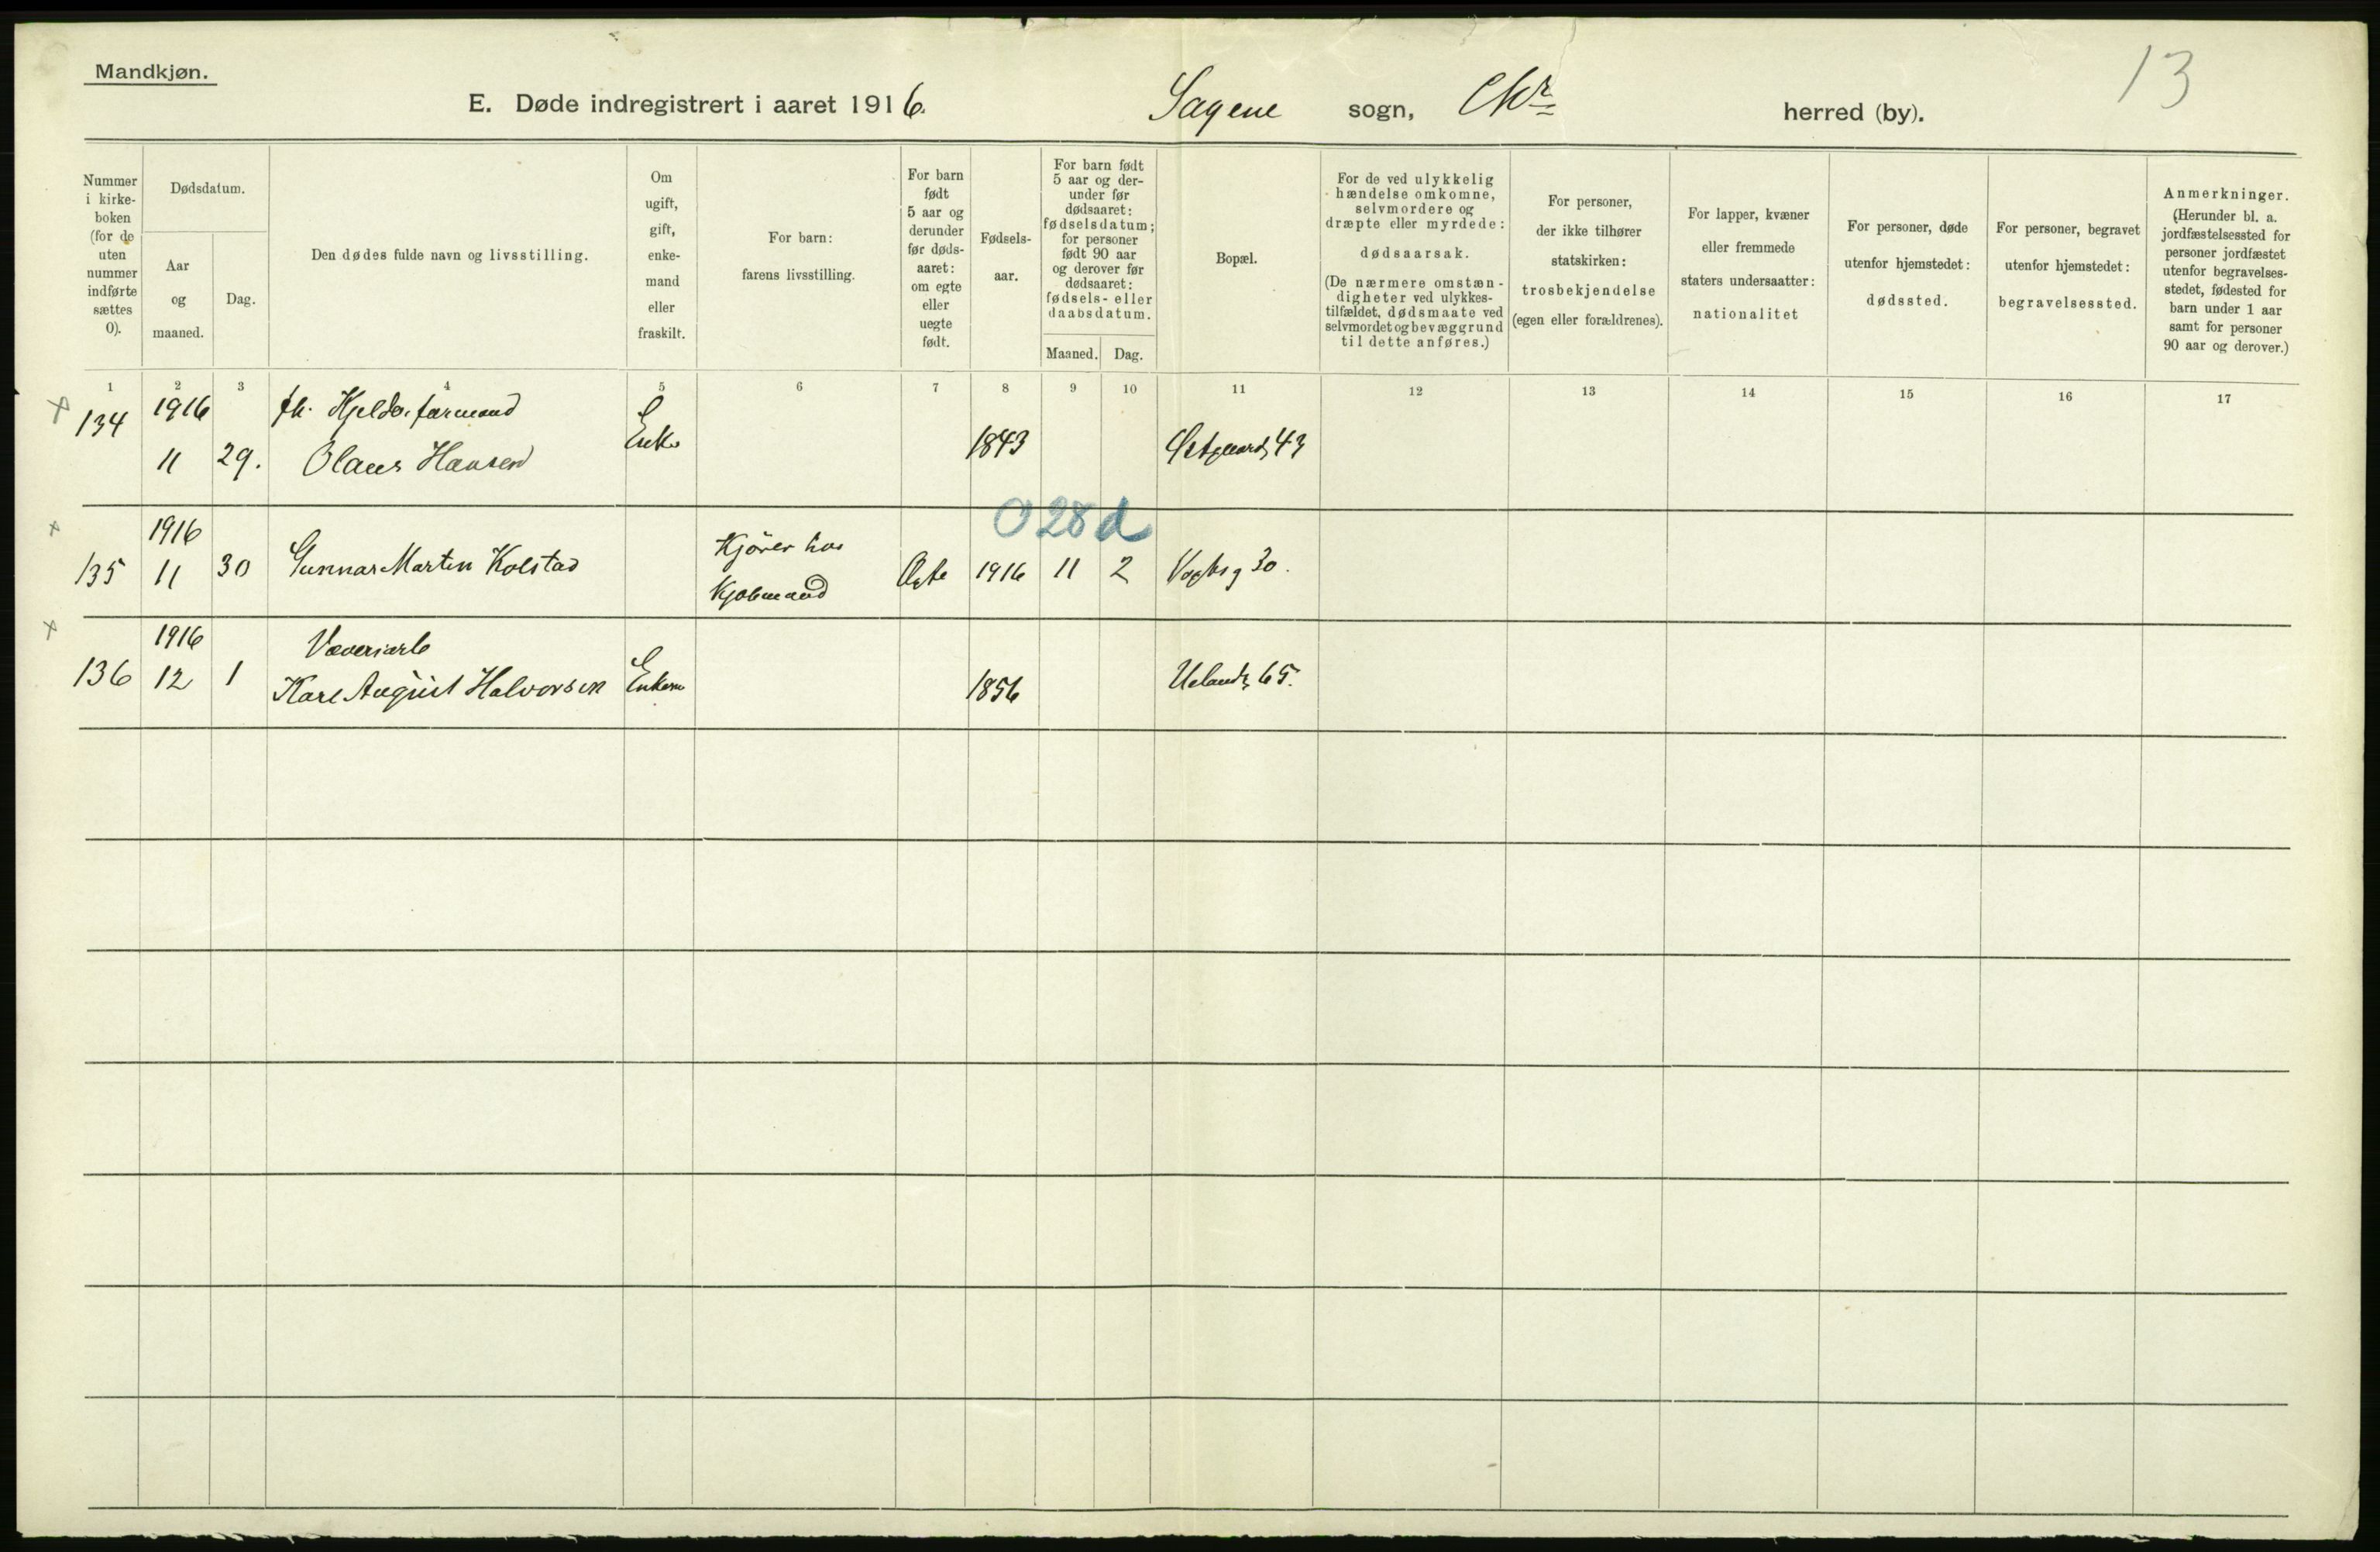 Mandkjøn.
13
E. Døde indregistrert i aaret 1916.
Sagene sogn, Chr. herred (by).
Nummer i kirke-boken (for de uten nummer indførte sættes 0).
Dødsdatum.
Aar og maaned.
Dag.
Den dødes fulde navn og livsstilling.
Om ugift, gift, enke-mand eller fraskilt.
For barn: farens livsstilling.
For barn født 5 aar og derunder før døds-aaret: om egte eller uegte født.
Fødsels-aar.
For barn født 5 aar og der-under før dødsaaret: fødselsdatum; for personer født 90 aar og derover før dødsaaret: fødsels- eller daabsdatum.
Maaned.
Dag.
Bopæl.
For de ved ulykkelig hændelse omkomne, selvmordere og dræpte eller myrdede: dødsaarsak. (De nærmere omstæn-digheter ved ulykkes-tilfældet, dødsmaate ved selvmordet og bevæggrund til dette anføres.)
For personer, der ikke tilhører statskirken: trosbekjendelse (egen eller forældrenes).
For lapper, kvæner eller fremmede staters undersaatter: nationalitet
For personer, døde utenfor hjemstedet: dødssted.
For personer, begravet utenfor hjemstedet: begravelsessted.
Anmerkninger. (Herunder bl. a. jordfæstelsessted for personer jordfæstet utenfor begravelses-stedet, fødested for barn under 1 aar samt for personer 90 aar og derover.)
1 2 3 4 5 6 7 8 9 10 11 12 13 14 15 16 17
134 1916 11 29. Olaus Hansen Enke 1843 43
0 28 d
135 1916 11 30 Gunnar Martin Kolstad Kjører hos Kjøbmand Egte 1916 11 2 Vogtsg 30.
136 1916 12 1 Væveriarb Karl August Halvorsen Enkem 1856 Uelandsg 65.